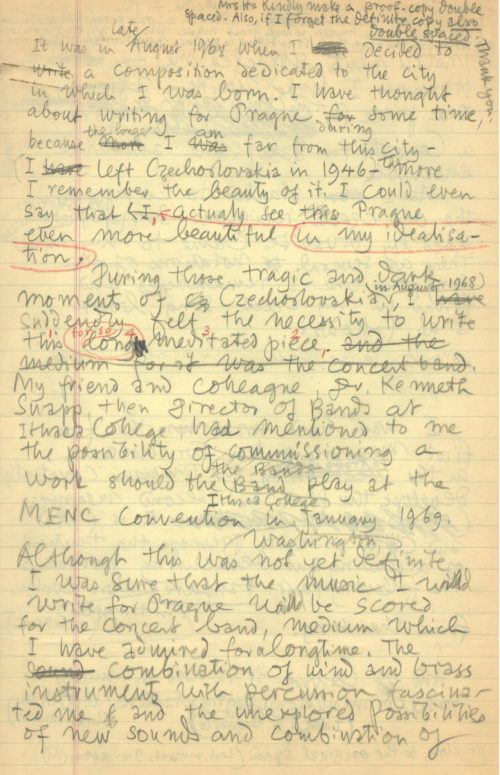 Mrs Hs Kindly make a proof-copy double
spaced. Also, if I forget the definite copy also
double spaced. Thank you.
It was in late August 1968 when I decided to
write a composition dedicated to the city
in which I was born. I have thought
about writing for Prague for some time,
because the longer I am far from this city -
(I have left Czechoslovakia in 1946 - the more
I remember the beauty of it. I could even
say that I, actualy see this Prague
even more beautiful in my idealisa-
tion.
During those tragic and dark
moment of Czechoslovakia, (in August 1968) I have
suddendly felt the necessity to write
this for so long meditated piece. and the
medium for it was the concert band.
My friend and colleague, Dr. Kenneth
Snapp, then Director of Bands at
Ithaca College had mentioned to me
the possibility of commissioning a
work should the Band play at the
the Band
Ithaca College
MENC Convention in January 1969.
Washington
Although this was not yet definite,
I was sure that the music I would
write for Prague will be scored
for the concert band, medium which
I have admired for a longtime. The
sound combination of wind and brass
instruments with percussion fascina-
ted me and the unexplored possibilities
of new sounds and combination of